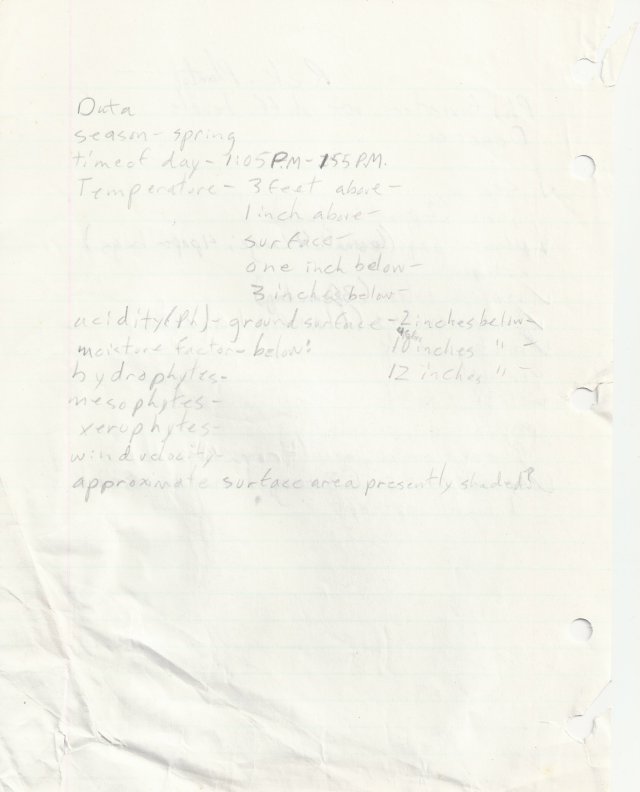 Data
season - spring
time of day - 1:05 P.M - 155 P.M.
Temperature - 3 feet above -
1 inch above -
surface -
one inch below -
3 inches below -
acidity (Ph) - ground surface - 2 inches below -
moisture factor - below: 10 inches " -
hydrophytes - 12 inches " -
mesophytes -
xerophytes -
wind velocity -
approximate surface area presently shaded?